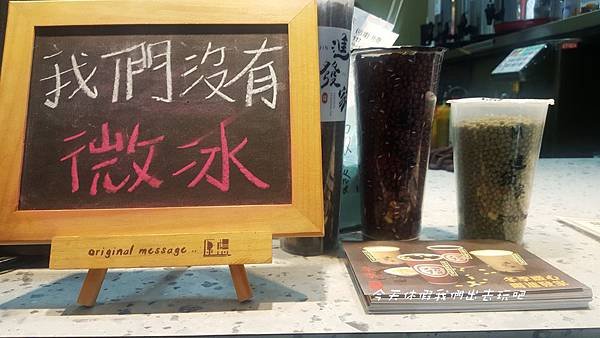 我們沒有
微冰
original message..
進發家
今天休假我們出去玩吧